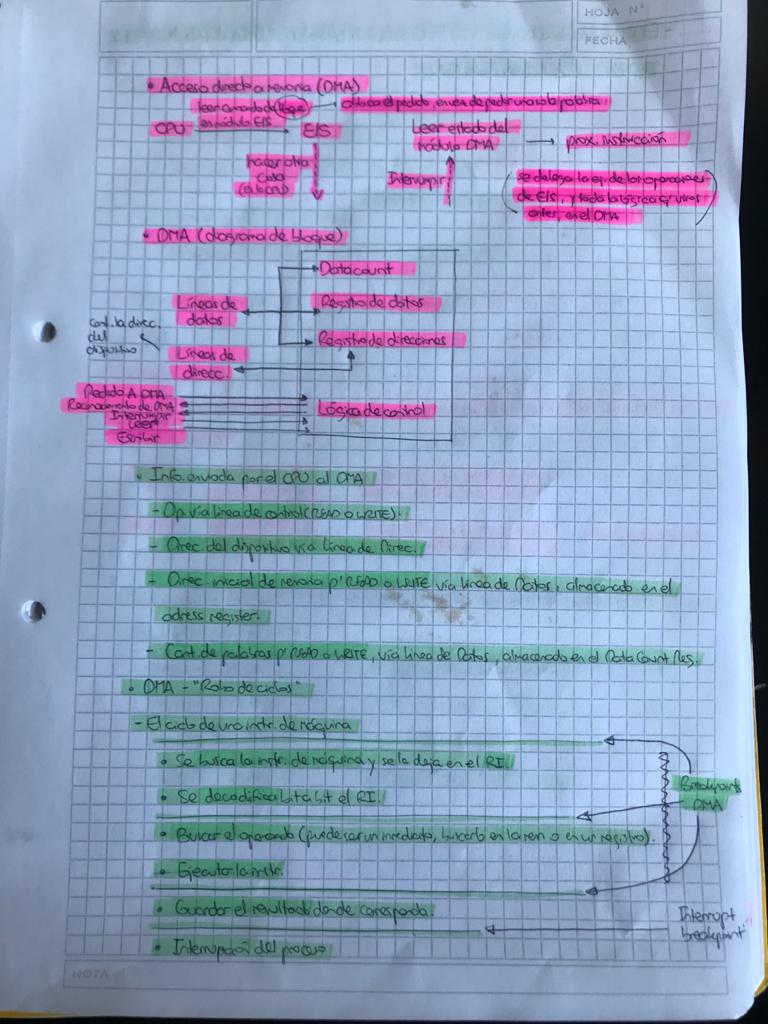 HOJA N°
FECHA
• Acceso directo a memoria (DMA)
leer comando de bloque → obtiene el pedido, en vez de pedir una sola palabra
CPU en módulo E/S → E/S
Leer estado del
módulo DMA → prox. instrucción
hacer otra
cosa
Interrumpir
(se delega la ej. de las operaciones
de E/S, y toda la lógica
antes, en el DMA)
• DMA (diagrama de bloque)
Data count
Líneas de
datos
Registro de datos
Cont. la direc.
del
dispositivo
Registro de direcciones
Líneas de
direcc.
Pedido A DMA
Reconocimiento de DMA
Interrumpir
Leer
Escribir
Lógica de control
• Info. enviada por el CPU al DMA
- Op vía línea de control (READ o WRITE).
- Direc. del dispositivo vía Línea de Direc.
- Direc. inicial de memoria p' READ o WRITE vía línea de Datos, almacenado en el
adress register.
- Cant. de palabras p' READ o WRITE, vía línea de Datos, almacenado en el Data Count Reg.
• DMA - "Robo de ciclos"
- El ciclo de una instr. de máquina
• Se busca la instr. de máquina y se la deja en el RI.
• Se decodifica bit a bit el RI.
Breakpoints
DMA
• Buscar el operando (puede ser un inmediato, buscarlo en la mem o en un registro).
• Ejecutar la instr.
• Guardar el resultado donde corresponda.
Interrupt
breakpoint
• Interrupción del proceso
NOTA